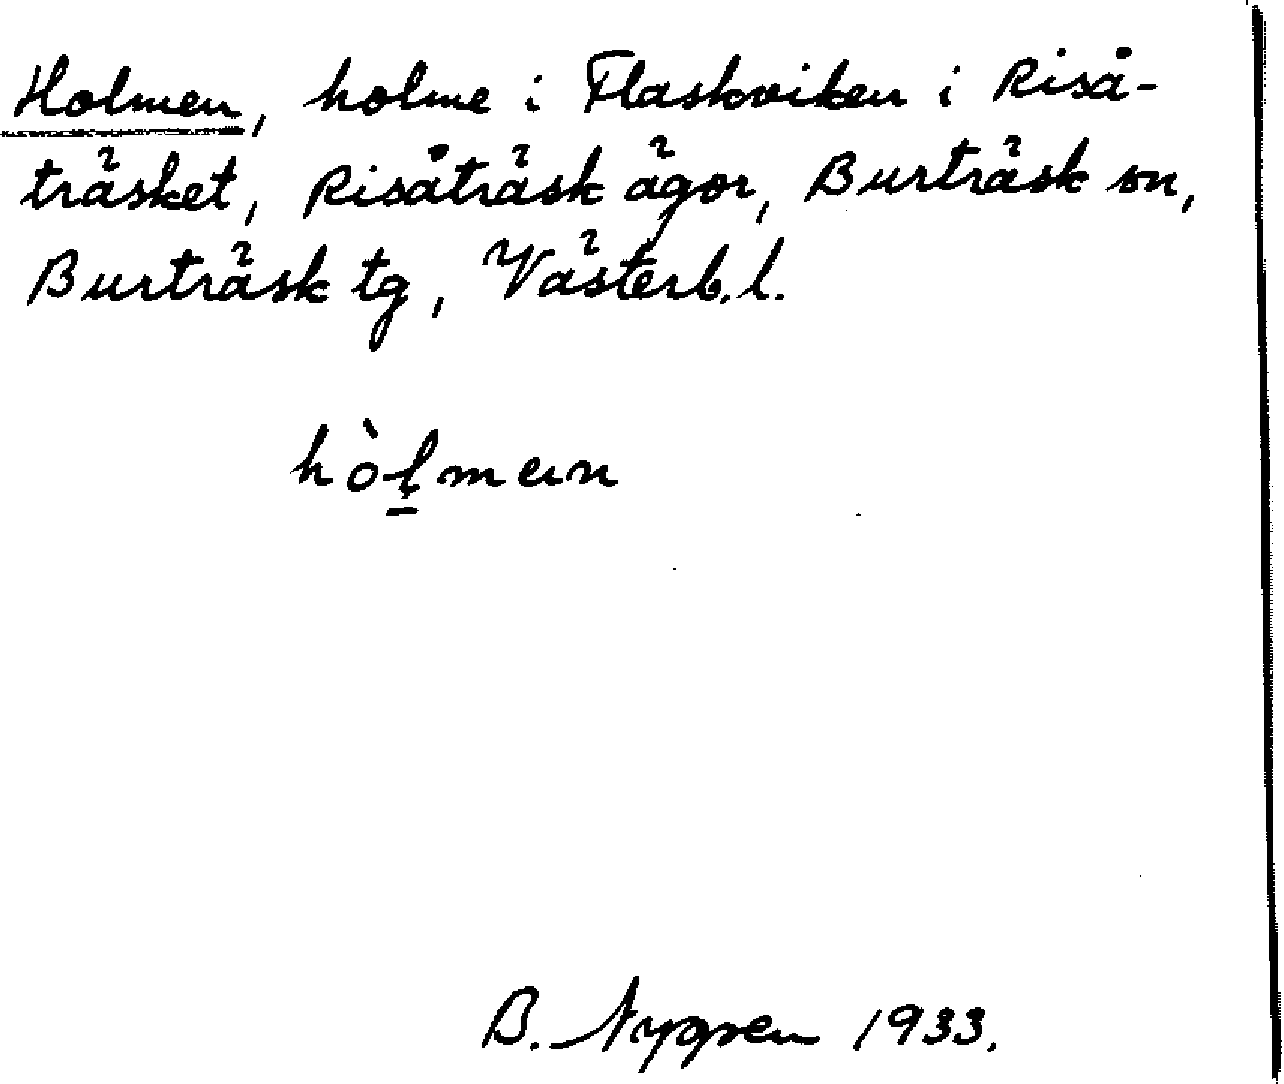 Holmen, holme i Flaskviken i Riså-
träsket, Risåträsk ägor, Burträsk sn,
Burträsk tg, Västerb. l.
hòl̠men
B. Nygren 1933.